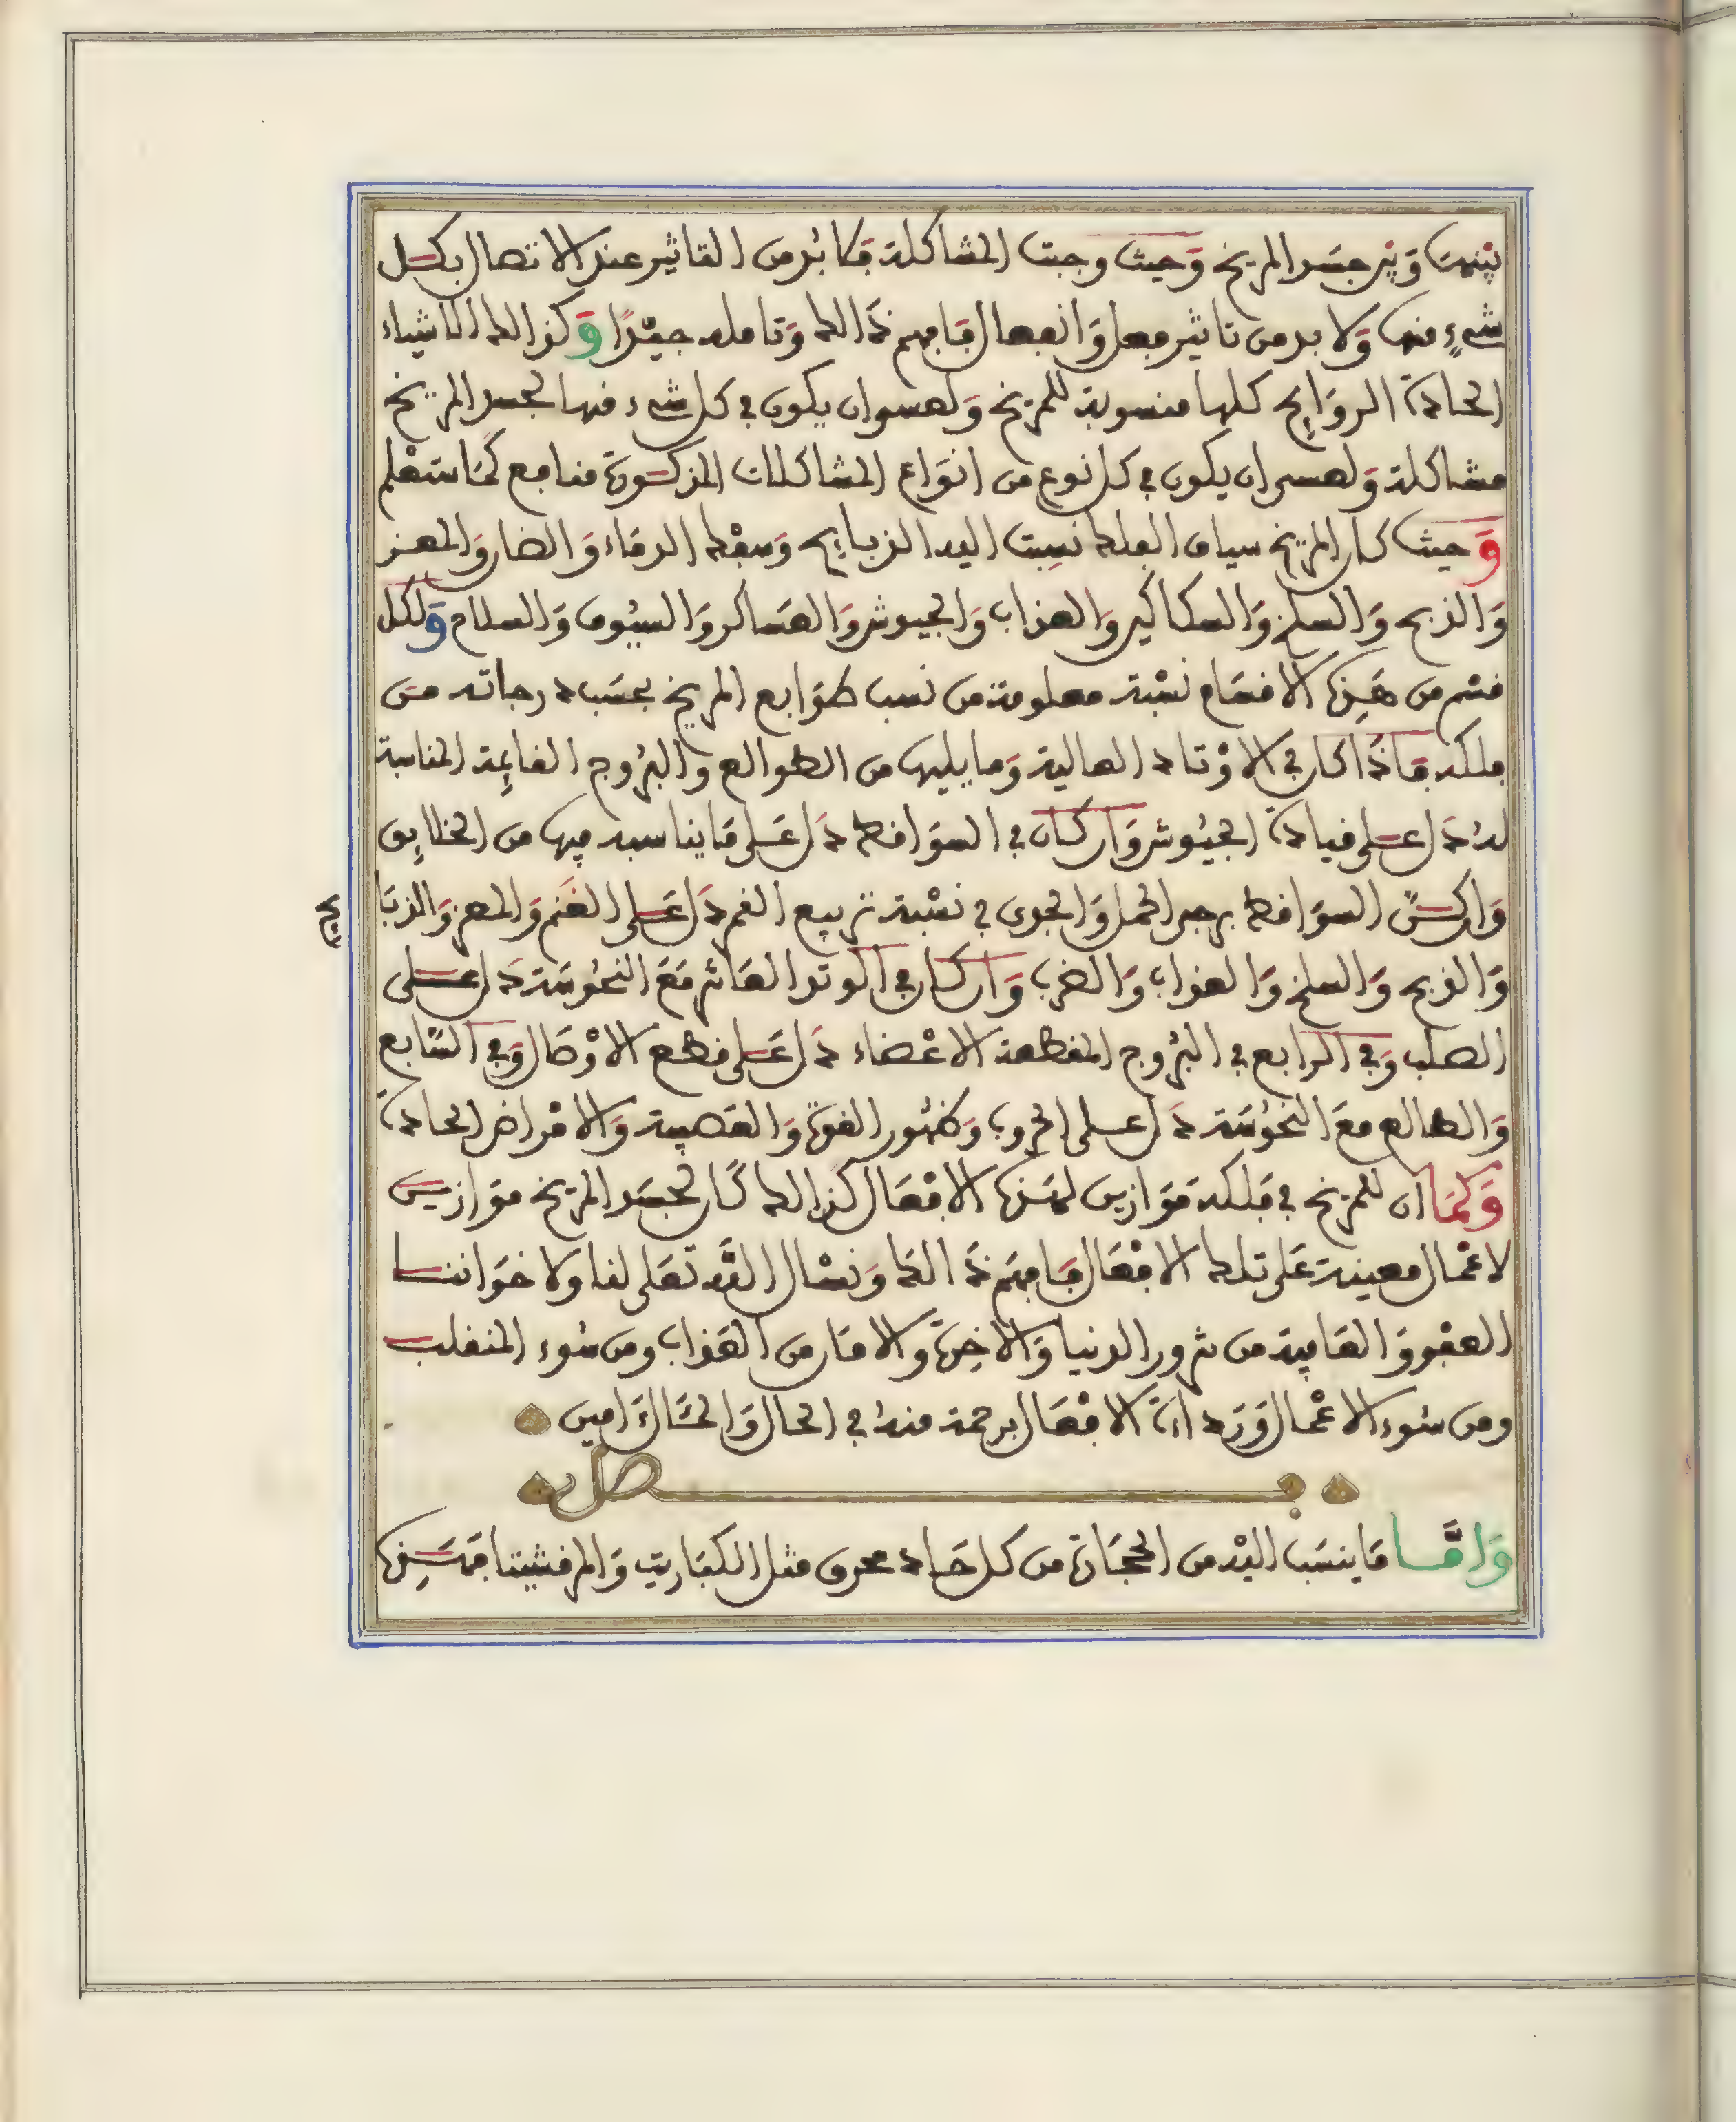 بينها وبين جسد المريخ وحيث وجبت المشاكلة فلا بد من التاثير عند الاتصال بكل
شيء منها ولا بد من تاثير فعل وانفعال فافهم ذالك وتامله جيدا وكذالك الاشياء
الحادة الروايح كلها منسوبة للمريخ ولعسو ان يكون في كل شيء منها لجسد المريخ
مشاكلة ولعسى ان يكون في كل نوع من انواع المشاكلات المذكورة منافع كما ستعلم
وحيث كان المريخ سياف الفلك نسبت اليه الذبايح وسفك الدماء والضان والمعز
والذبح والسلخ والسكاكين والعذاب والجيوش والعساكر والسيوف والسلاح ولكل
قسم من هذه الاقسام نسبة معلومة من نسب طوابع المريخ بحسب درجاته من
فلكه فاذا كان في الاوتاد العالية وما يليها من الطوالع والبروج القايمة المناسبة
له دل على قيادة الجيوش وان كان في السواقط دل على ما يناسبه فيها من الخلايق
وان كن السواقط برجي الحمل والجدي في نسبة تربيع القمر دل على الغنم والمعز والذبايح
والذبح والسلخ والعذاب والضرب وان كان في الوتد العاشر مع النحوسة دل على
الصلب وفي الرابع في البروج المقطعة الاعضاء دل على قطع الاوصال وفي السابع
والطالع مع النحوسة دل على الحروب وظهور القوة والعصبية والامراض الحادة
وكما ان للمريخ في فلكه موازين لهذه الافعال كذالك كان لجسد المريخ موازيين
لاعمال معينة على تلك الافعال فافهم ذالك ونسال الله تعلى لنا ولاخواننا
العفو والعافية من شرور الدنيا والاخرة والامان من العذاب ومن سوء المنقلب
ومن سوء الاعمال ورداءة الافعال برحمة منه في الحال والمئال ءامين
فصل
واما ما ينسب اليه من الحجارة من كل حاد محرق مثل الكباريت والمرقشيتا فهذه